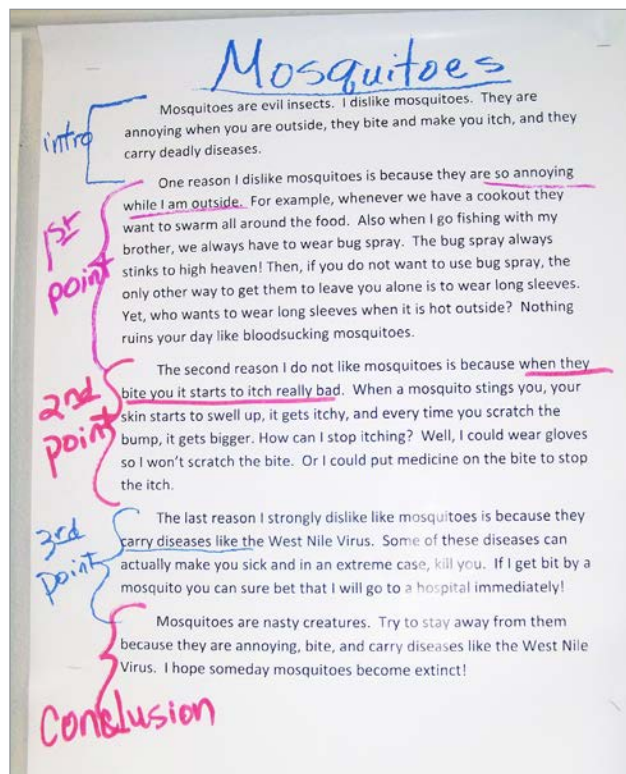 Mosquitoes
intro
Mosquitoes are evil insects. I dislike mosquitoes. They are
annoying when you are outside, they bite and make you itch, and they
carry deadly diseases.
1st
point
One reason I dislike mosquitoes is because they are so annoying
while I am outside. For example, whenever we have a cookout they
want to swarm all around the food. Also when I go fishing with my
brother, we always have to wear bug spray. The bug spray always
stinks to high heaven! Then, if you do not want to use bug spray, the
only other way to get them to leave you alone is to wear long sleeves.
Yet, who wants to wear long sleeves when it is hot outside? Nothing
ruins your day like bloodsucking mosquitoes.
2nd
point
The second reason I do not like mosquitoes is because when they
bite you it starts to itch really bad. When a mosquito stings you, your
skin starts to swell up, it gets itchy, and every time you scratch the
bump, it gets bigger. How can I stop itching? Well, I could wear gloves
so I won't scratch the bite. Or I could put medicine on the bite to stop
the itch.
3rd
point
The last reason I strongly dislike like mosquitoes is because they
carry diseases like the West Nile Virus. Some of these diseases can
actually make you sick and in an extreme case, kill you. If I get bit by a
mosquito you can sure bet that I will go to a hospital immediately!
Mosquitoes are nasty creatures. Try to stay away from them
because they are annoying, bite, and carry diseases like the West Nile
Virus. I hope someday mosquitoes become extinct!
Conclusion